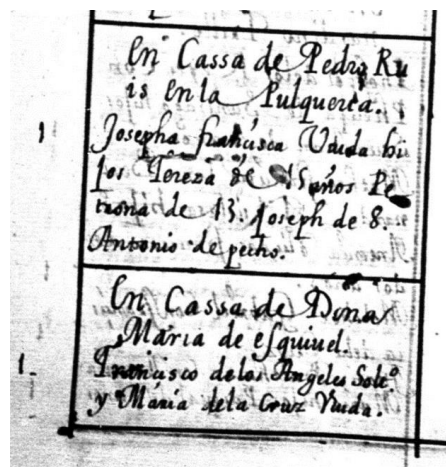 En Cassa de Pedro Ru
is En la Pulqueria.
1 Josepha francisca Viuda hi
jos Tereza de 15 años Pe
trona de 13. Joseph de 8.
Antonio de pecho.
En Cassa de Dona
Maria de esquiuel.
1. Francisco delos Angeles Solt.º
y Maria dela Cruz Viuda.